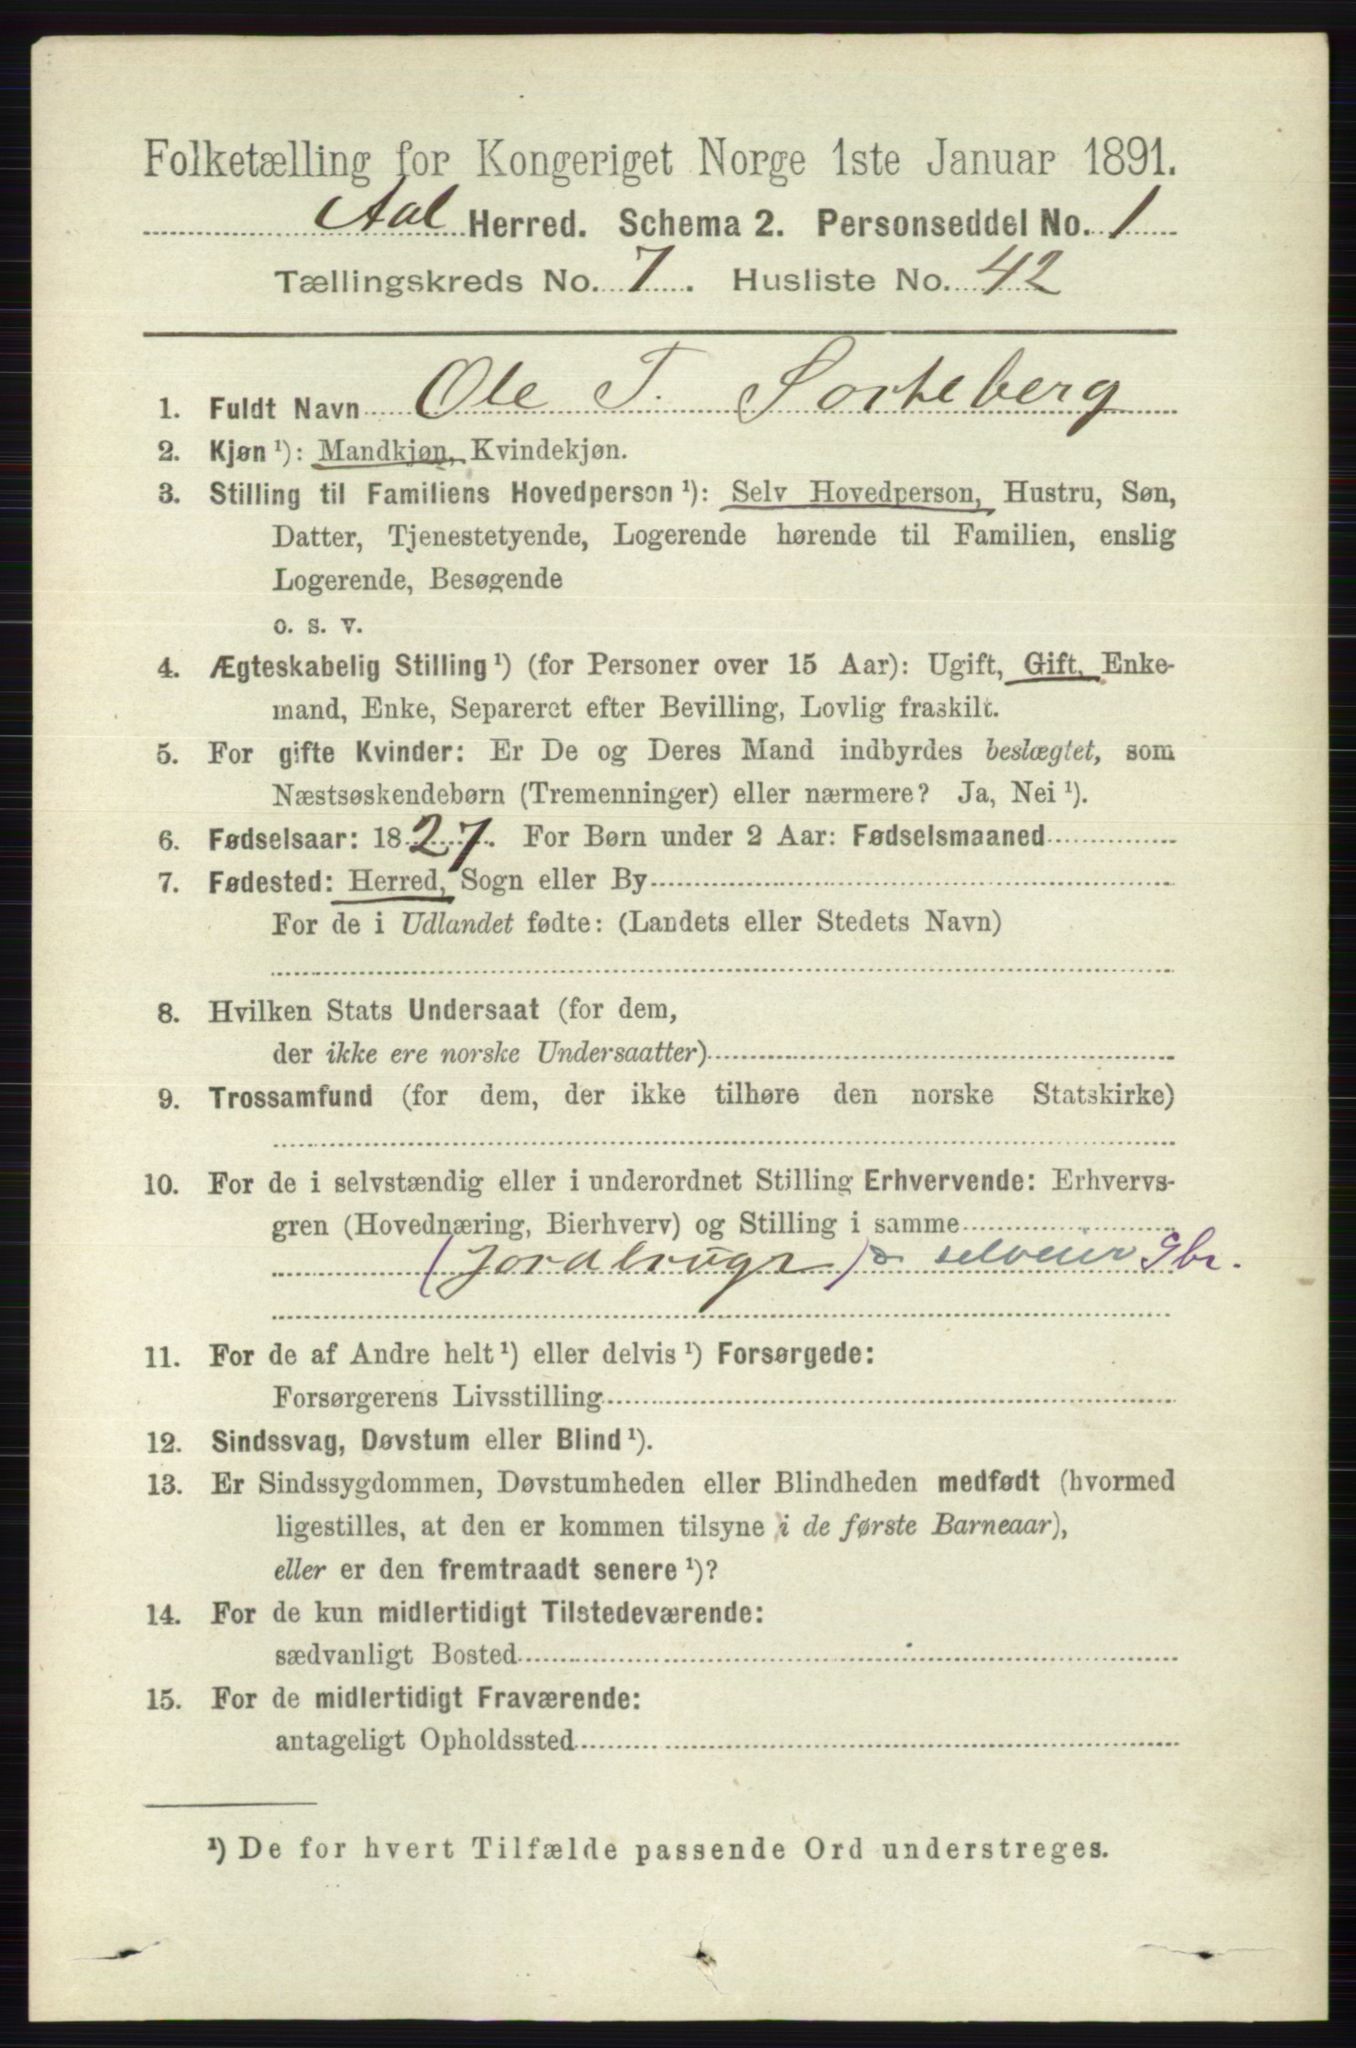 Folketælling for Kongeriget Norge 1ste Januar 1891.
Aal Herred. Schema 2. Personseddel No. 1
Tællingskreds No. 7. Husliste No. 42
1. Fuldt Navn Ole T. Sorteberg
2. Kjøn ¹): Mandkjøn, Kvindekjøn.
3. Stilling til Familiens Hovedperson ¹): Selv Hovedperson, Hustru, Søn,
Datter, Tjenestetyende, Logerende hørende til Familien, enslig
Logerende, Besøgende
o. s. v.
4. Ægteskabelig Stilling ¹) (for Personer over 15 Aar): Ugift, Gift, Enke-
mand, Enke, Separeret efter Bevilling, Lovlig fraskilt.
5. For gifte Kvinder: Er De og Deres Mand indbyrdes beslægtet, som
Næstsøskendebørn (Tremenninger) eller nærmere? Ja, Nei ¹).
6. Fødselsaar: 1827. For Børn under 2 Aar: Fødselsmaaned
7. Fødested: Herred, Sogn eller By
For de i Udlandet fødte: (Landets eller Stedets Navn)
8. Hvilken Stats Undersaat (for dem,
der ikke ere norske Undersaatter)
9. Trossamfund (for dem, der ikke tilhøre den norske Statskirke)
10. For de i selvstændig eller i underordnet Stilling Erhvervende: Erhvervs-
gren (Hovednæring, Bierhverv) og Stilling i samme
(Jordbruger) selveier Gbr.
11. For de af Andre helt ¹) eller delvis ¹) Forsørgede:
Forsørgerens Livsstilling
12. Sindssvag, Døvstum eller Blind ¹).
13. Er Sindssygdommen, Døvstumheden eller Blindheden medfødt (hvormed
ligestilles, at den er kommen tilsyne i de første Barneaar),
eller er den fremtraadt senere ¹)?
14. For de kun midlertidigt Tilstedeværende:
sædvanligt Bosted
15. For de midlertidigt Fraværende:
antageligt Opholdssted
¹) De for hvert Tilfælde passende Ord understreges.